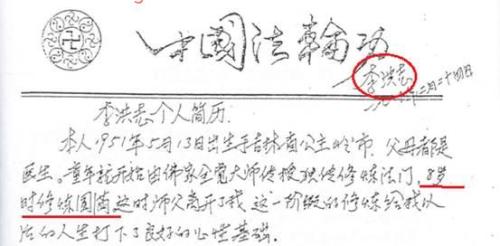 中國法輪功
李洪志
二月二十四日
李洪志个人简历
本人1951年5月13日出生于吉林省公主岭市,父母都是
医生。童年就开始由佛家全觉大师传授职传修炼法门,8岁
时修炼圆菌,这时师父离开了我,这一阶段的修炼给我以
后的人生打下了良好的心性基础.